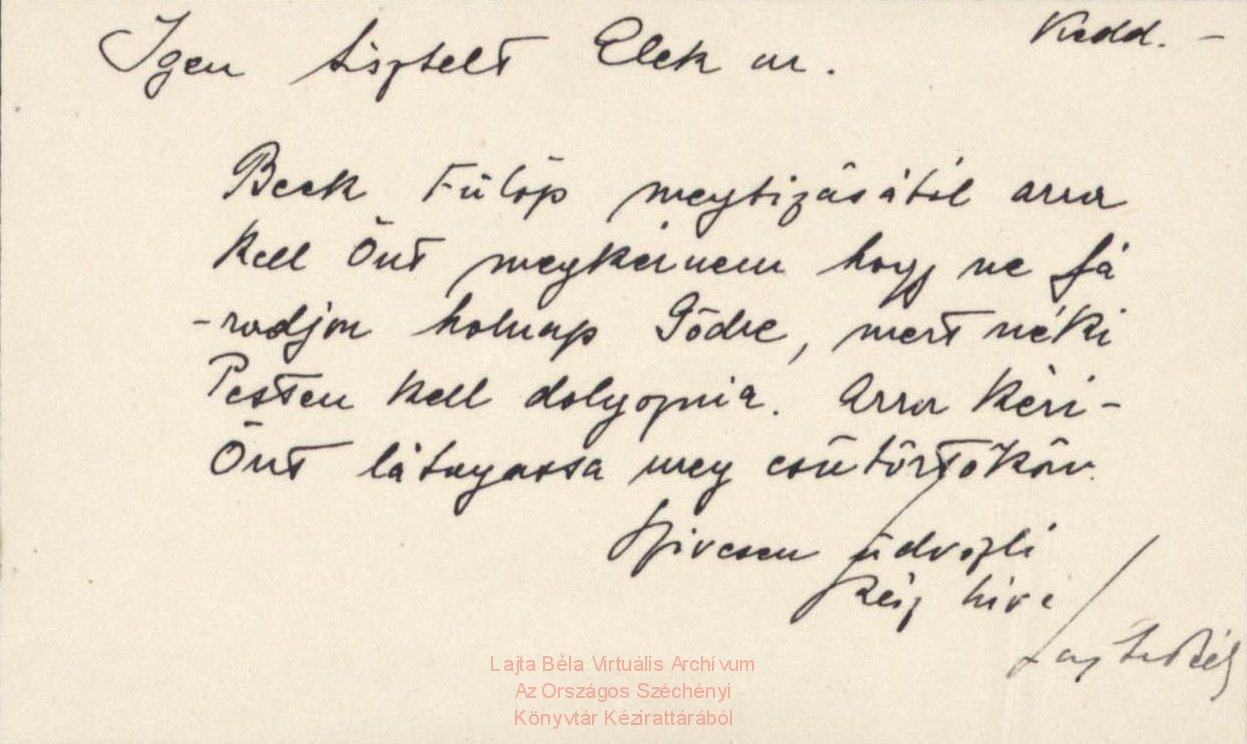 Kedd. –
Igen tisztelt Elek ur.
Beck Fülöp megbizásából arra
kell Önt megkérnem hogy ne fá
-radjon holnap Gödre, mert néki
Pesten kell dolgoznia. Arra kéri-
Önt látogassa meg csütörtökön.
Szivesen üdvözli
kész hive
Lajta Béla
Lajta Béla Virtuális Archívum
Az Országos Széchényi
Könyvtár Kézirattárából